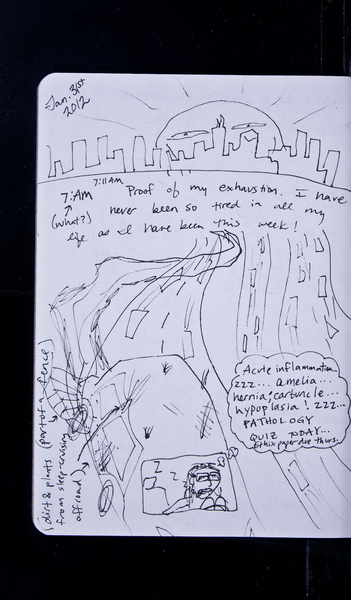 Jan. 31st
2012
7:AM
7:11AM
(what?)
Proof of my exhaustion. I have
never been so tired in all my
life as I have been this week!
Acute inflammation
zzz... amelia...
hernia; carbuncle...
hypoplasia! zzz...
PATHOLOGY
QUIZ TODAY...
Ethix paper due thurs.
z z z
dirt & plants (part of a fence)
from sleep-cruising
off road)